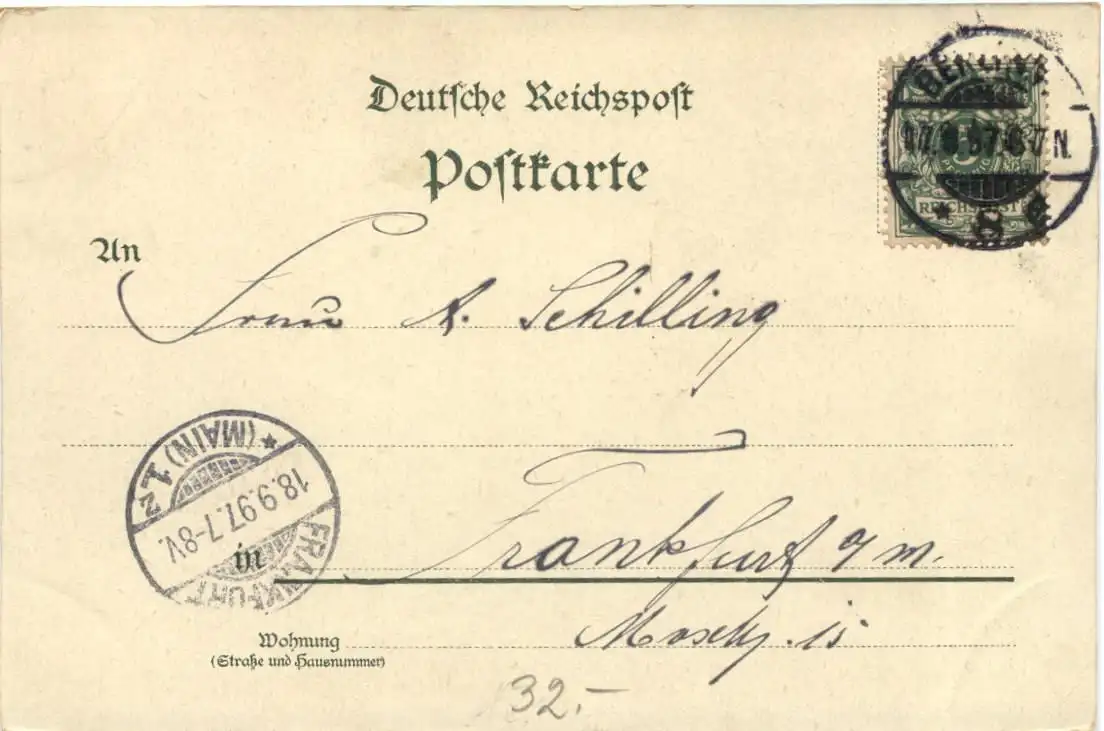 Deutsche Reichspost
Postkarte
An
Frau A. Schilling
BERLIN
17.9.97.6-7N.
* 8 d
REICHSPOST
* (MAIN) 1.z
18.9.97.7-8V.
FRANKFURT
in
Frankfurt a/m.
15
Wohnung
(Straße und Hausnummer)
32.-